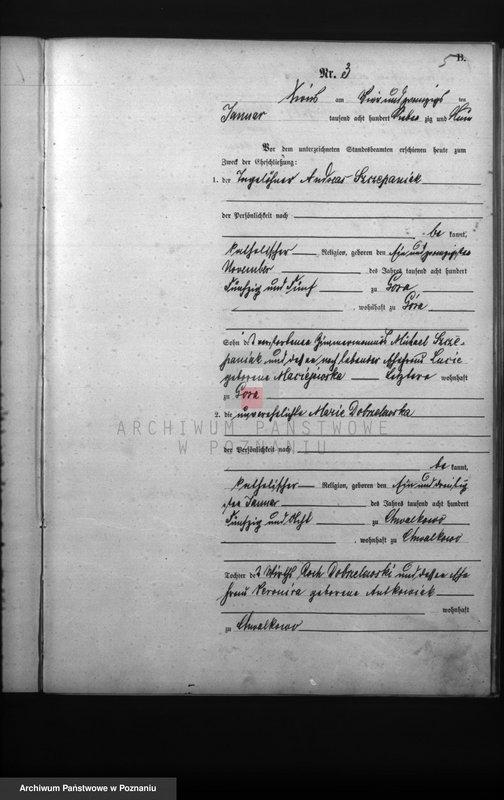 5 B.
Nr. 3
am Vier und zwanzigs ten
Januar tausend acht hundert Sieben zig und Neun
Vor dem unterzeichneten Standesbeamten erschienen heute zum
Zweck der Eheschließung:
1. der Tagelöhner Andreas Szczepaniak
der Persönlichkeit nach
be kannt,
katholischer Religion, geboren den Ein und zwanzigsten
November des Jahres tausend acht hundert
Fünfzig und Fünf zu Gora
, wohnhaft zu Góra
Sohn des verstorbenen Zimmermanns Michael Szcze-
paniak und dessen noch lebender Ehefrau Lucie
geborene Letztere wohnhaft
zu Gora
2. die unverehelichte Marie Dobzelewska
ARCHIWUM PAŃSTWOWE
W POZNANIU
der Persönlichkeit nach
be kannt,
katholischer Religion, geboren den Ein und dreißig
sten Januar des Jahres tausend acht hundert
Fünfzig und Acht zu Chwalkowo
, wohnhaft zu Chwalkowo
Tochter des Wirths Roch und dessen Ehe
frau Veronica geborene Antkowiak
wohnhaft
zu Chwalkowo
Archiwum Państwowe w Poznaniu